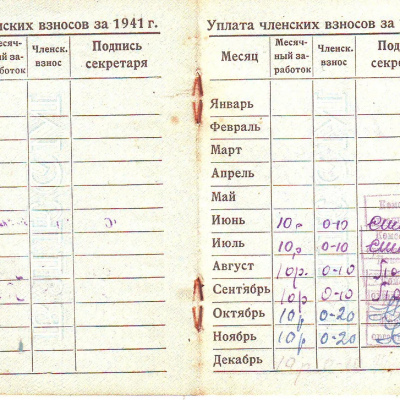 нских взносов за 1941 г.
есяч-
ый за-
боток
Членск.
взнос
Подпись
секретаря
Уплата членских взносов за 1
Месяц
Месяч-
ный за-
работок
Членск.
взнос
Под
секре
Январь
Февраль
Март
Апрель
Май
Июнь 10 р 0-10
Июль 10 р 0-10
Август 10 р. 0-10
Сентябрь 10 р 0-10
Октябрь 10 р 0-20
Ноябрь 10 р 0-20
Декабрь 10 р